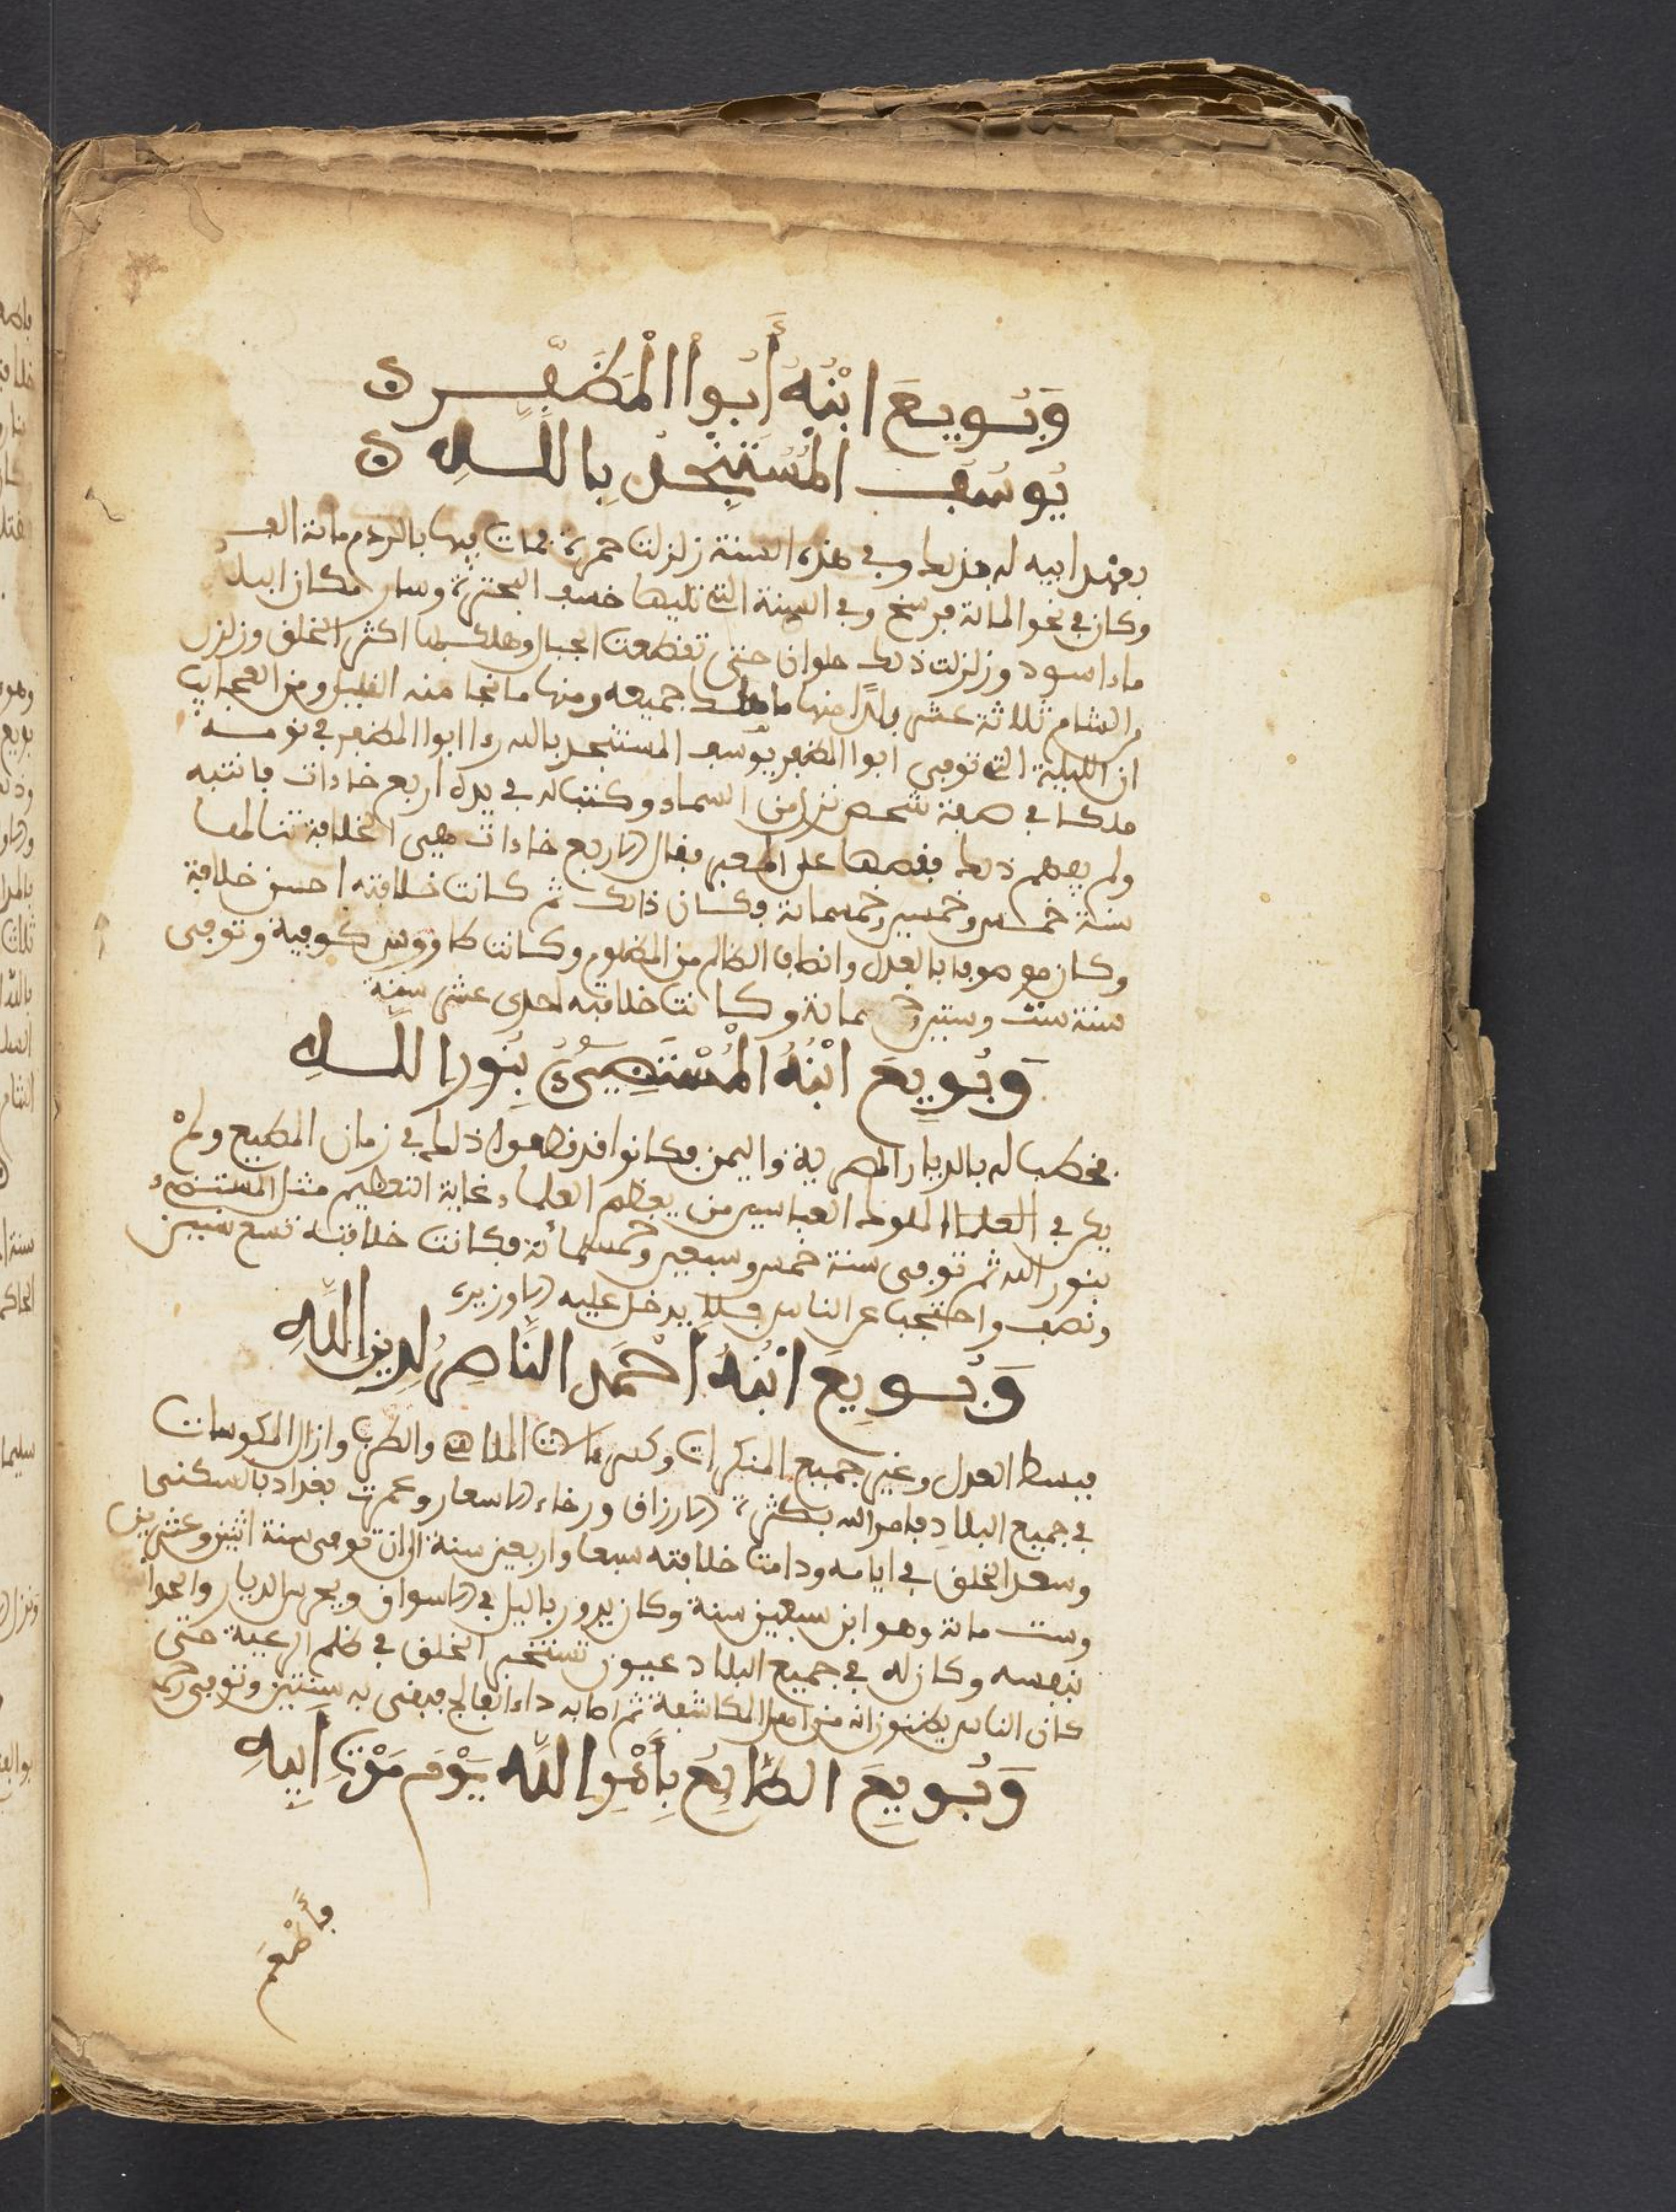 وَبُويعَ ابْنُهُ أَبُوا الْمُظَفَّر
يُوسُف المُسْتَنْجِدُ بِاللهِ
بعهد ابيه له بذلك وفي هذه السنة زلزلت فمات فيها بالردم مائة الف
وكان في نحو المائة فرسخ وفي السنة التي تليها خسف وسار مكان البلد
ماء اسود وزلزلت ذلك حلوان حتى تقطعت الجبال وهلك اكثر الخلق وزلزل
بالشام ثلاثة عشر بلدا منها ما هلك جميعه ومنها ما نجا منه القليل ومن العجايب
ان الليلة التي توفي ابوا المظفر يوسف المستنجد بالله راا ابوا المظفر في نومه
ملكا في صفة شخص نزل من السماء وكتب له في يده اربع خاءات فانتبه
ولم يفهم ذلك فقصها على المعبر فقال الاربع خاءات هي الخلافة تنالها
سنة خمس وخمسين وخمسمائة فكان ذالك ثم كانت خلافته احسن خلافة
وكان موصوفا بالعدل وانصاف الظالم من المظلوم وكانت وتوفي
سنة ست وستين وكانت خلافته احدى عشر سنة
وَبُويِعَ ابْنُهُ الْمُسْتَضِيءُ بِنُورِ اللهِ
فخطب له بالديار المصرية واليمن وكانوا قد قطعوا ذلك في زمان المطيع ولمْ
يكن في الملوك العباسيين من يعظم العلماء غاية التعظيم مثل المستضيء
بنور الله ثم توفي سنة خمس وسبعين وخمسمائة فكانت خلافته تسع سنين
ونصف واحتجب عن الناس فلا يدخل عليه الا وزيره
وَبُويِعَ ابْنُهُ أَحْمَد النَّاصِرُ لِدِينِ اللَّهِ
فبسط العدل وغير جميع المنكرات وكسر الات الملاهي والطرب وازال المكوسات
في جميع البلاد فامر الله بكثرة الارزاق ورخاء الاسعار وعمرت بغداد بالسكنى
وسعد الخلق في ايامه ودامت خلافته سبعا واربعين سنة الى ان توفي سنة اثنين وعشرين
وست مائة وهو ابن سبعين سنة وكان يدور باليل في الاسواق ويحرس الديار
بنفسه وكان له في جميع البلاد عيون تستخبر الخلق في ظلم الرعية حتى
كان الناس يظنون انه من اهل المكاشفة ثم اصابه داء الفالج فبقي به سنتين وتوفي
وَبُويِعَ الطَّايِعُ بِأَمْرِ اللَّه يَوْمَ مَوْتِ أَبِيهِ